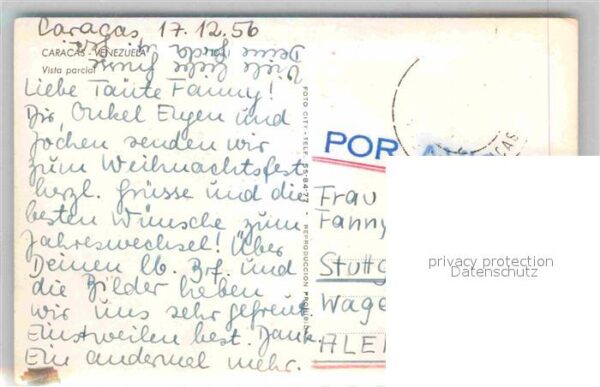 Caracas 17.12.56
CARACAS - VENEZUELA
Vista parcial
Liebe Tante Fanny!
Dir, Onkel Eugen und
Jochen senden wir
zum Weihnachtsfest
herzl. Grüsse und die
besten Wünsche zum
Jahreswechsel! Über
Deinen lb. Brf. und
die Bilder haben
wir uns sehr gefreut.
Einstweilen best. Dank.
Ein andermal mehr.
Viele liebe Küsse
Deine
FOTO CITY - TELF. 55-84-77 - REPRODUCCION PROHIBIDA
POR
CAS
Frau
Fanny
Stuttg
Wage
ALE
privacy protection
Datenschutz